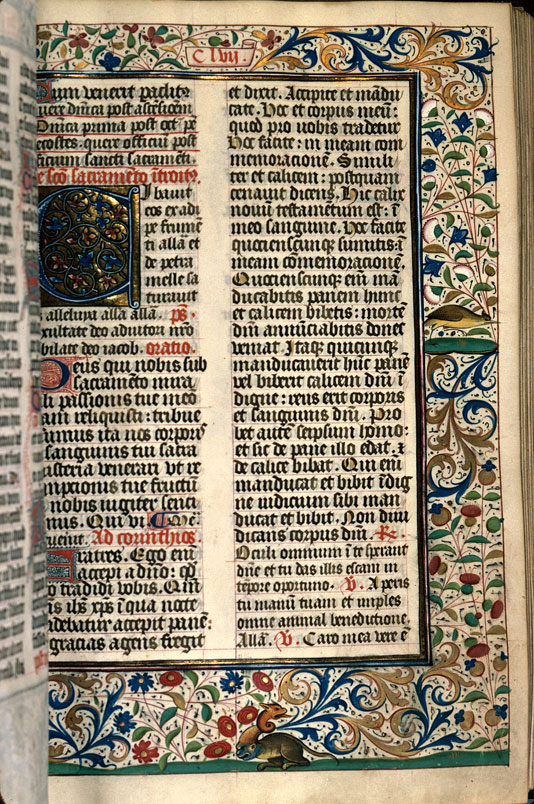 C lvij
Cum venerit paclitꝰ
quere dñica post ascẽsionem
Dñica prima post oct̃ pẽ
tecostes. quere officiũ post
officium sancti sacramẽti
De sc̃o sacramẽto ītroitꝰ.
Cibauit
eos ex adi
pe frumẽ
ti allã et
de petra
melle sa
turauit
eos alleluya alla allã. ps̃.
Exultate deo adiutori nr̃o
iubilate deo iacob. oratio.
Deus qui nobis sub
sacramẽto mira
bili passionis tue meo
riam reliquisti: tribue
quesumus ita nos corporꝭ
et sanguinis tui sacra
misteria venerari vt re
demptionis tue fructũ
in nobis iugiter senci
amus. Qui vi.
Ad corinthios.
Fratres. Ego em̃
accepi a dño: qđ
et tradidi vobis. Qm̃
dñs ihs̃ xp̃s ĩ qua nocte
tradebatur accepit panẽ:
et gracias agens fregit
et dixit. Accipite et mãdu
cate. Hoc et corpus meũ:
quod pro uobis tradetur
Hoc facite: in meam com
memoracionẽ. Simili
ter et calicem: postquam
cenauit dicens. Hic calix
noui testamẽtum est: ĩ
meo sanguine. Hoc facite
quociensciunqꝫ sumitis: ĩ
meam cõmemoracionẽ.
Quociensciunqꝫ em̃ mã
ducabitis panem hunc
et calicem bibetis: mortẽ
dñi annũciabitis donec
veniat. Itaqꝫ quicunqꝫ
manducauerit hũc panẽ
vel biberit calicem dñi ĩ
digne: reus erit corporis
et sanguinis dñi. Pro
bet autẽ seipsum homo:
et sic de pane illo edat. ⁊
de calice bibat. Qui em̃
manducat et bibit ĩdig
ne iudicium sibi man
ducat et bibit. Non diiu
dicans corpus dñi. R̃.
Oculi omnium ĩ te sperant
dñe et tu das illis escam in
tẽpore oportuno. V̇. Aperis
tu manũ tuam et imples
omne animal benedictione
Allã. V̇. Caro mea vere ẽ